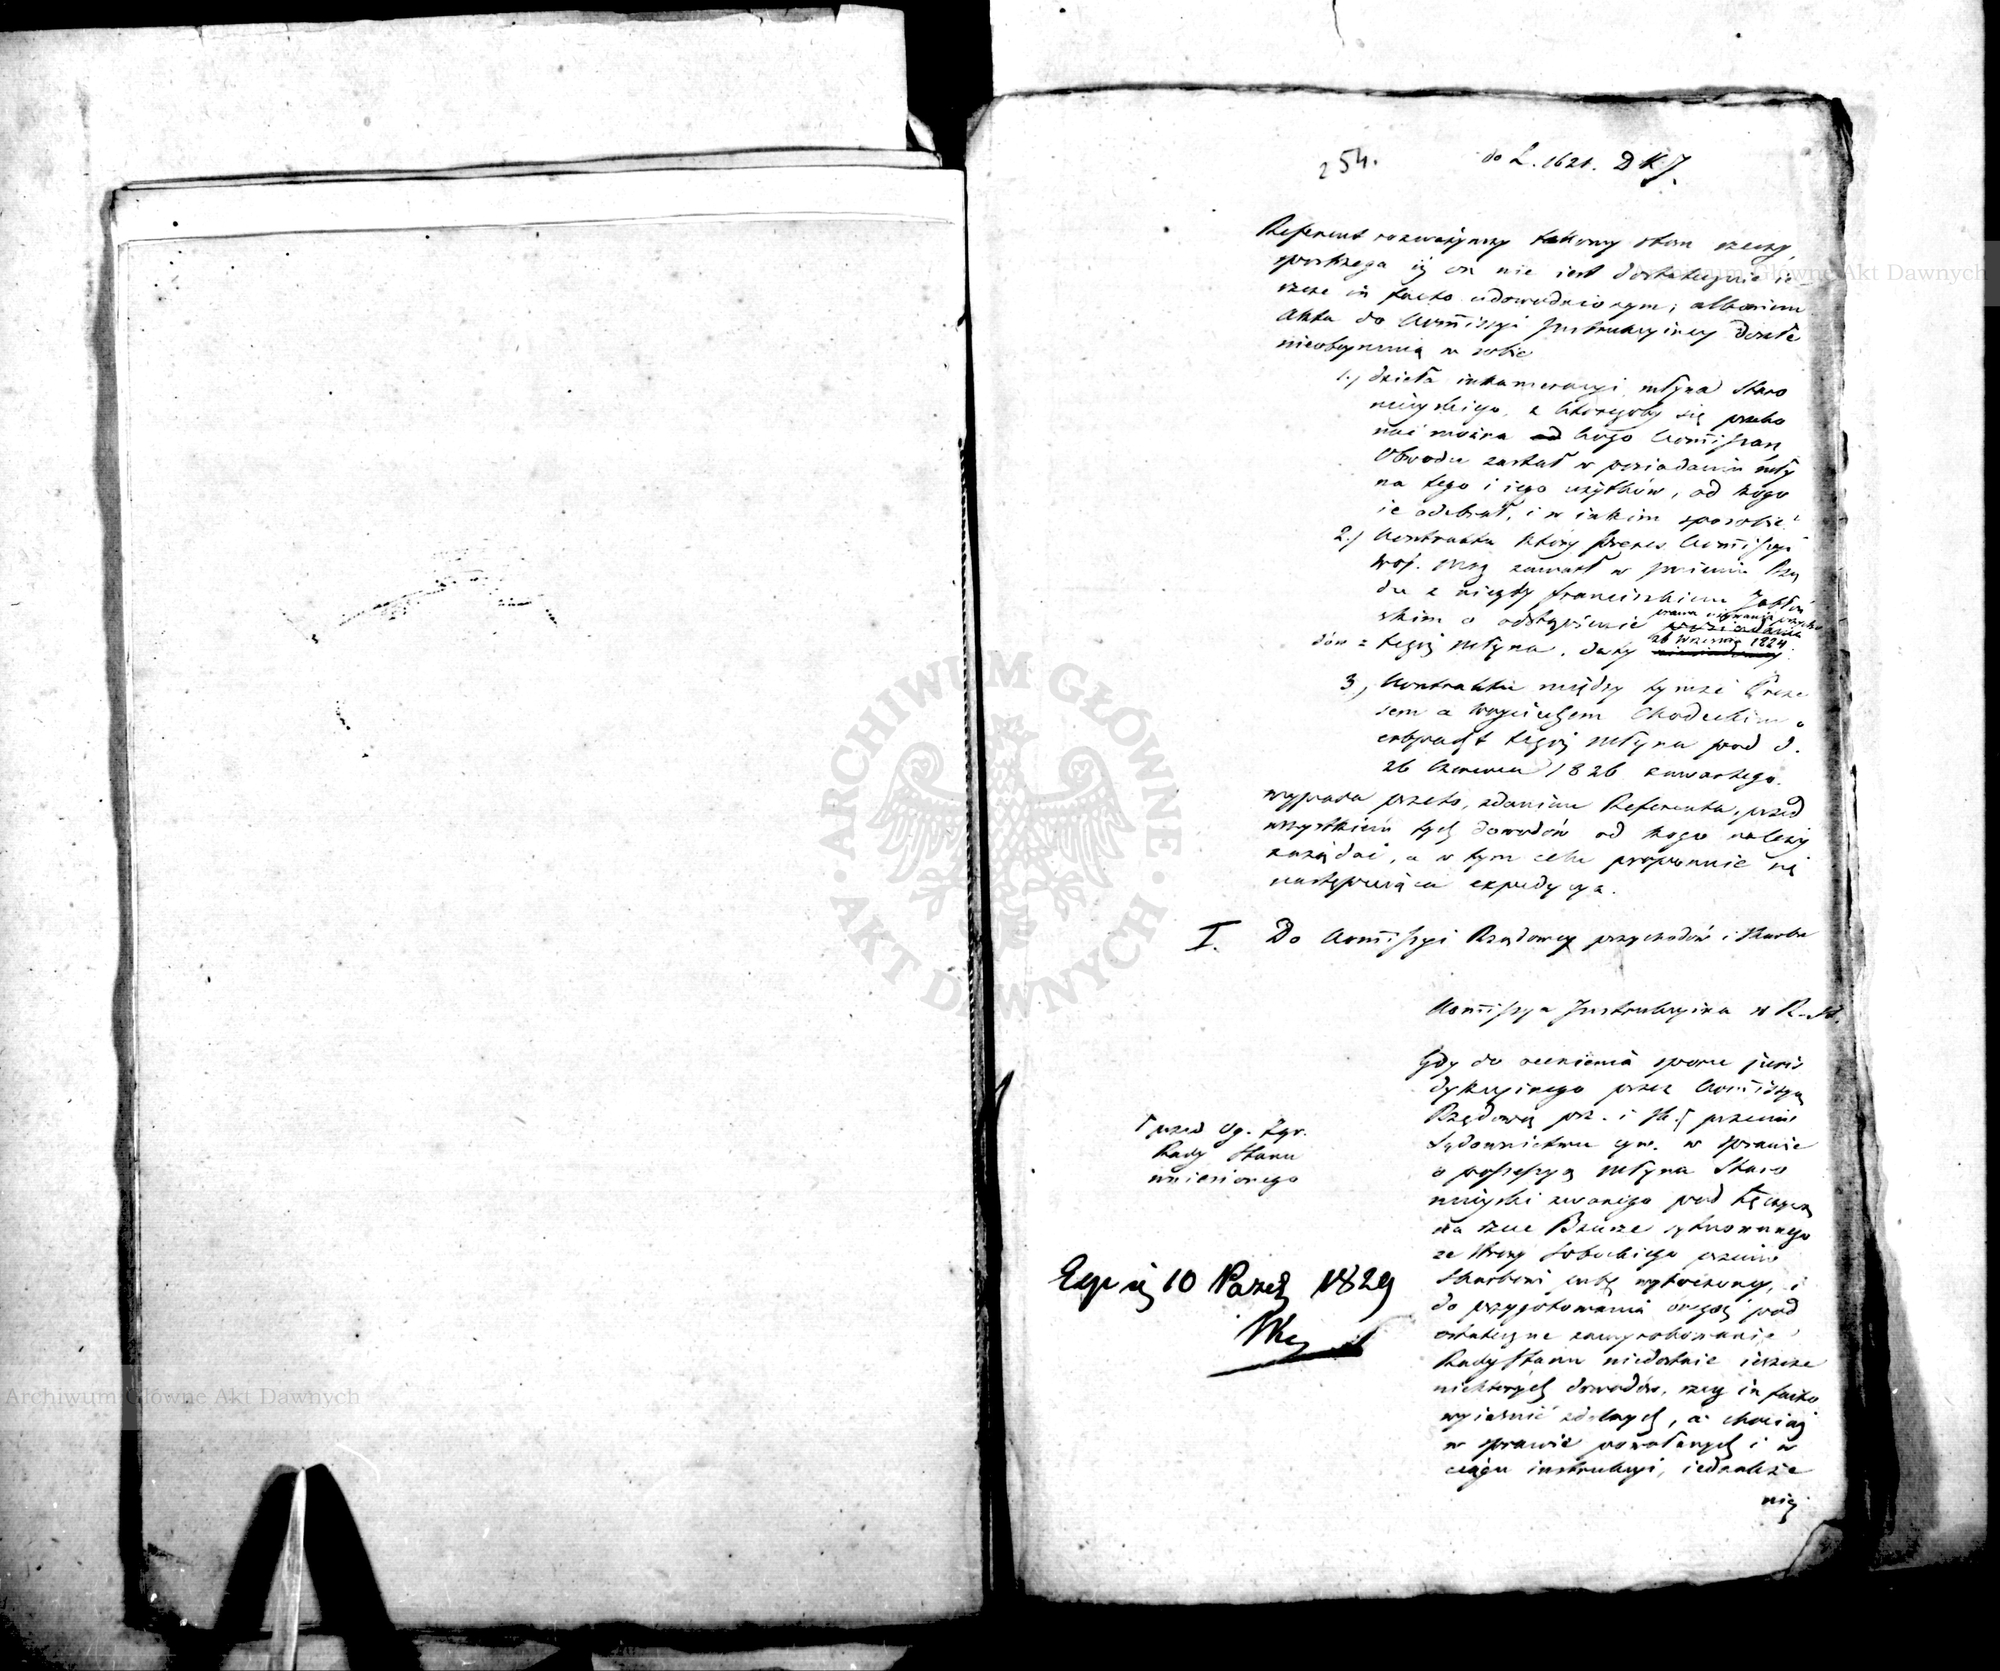 254.
do L. 1621. D.K.J.
Referent rozważywszy takowy stan rzeczy,
spostrzega iż on nie iest dostatecznie ie-
szcze in facto udowodnionym; albowiem
Akta do Kommissyi Instrukcyiney doszłe
nieobeymuią w sobie
1.) dzieła inkameracyi młyna Staro
z któregoby się przeko
nać można od kogo Kommissarz
Obwodu zastał w posiadaniu mły
na tego i iego użytków, od kogo
ie odebrał, i w iakim sposobie
2.) Kontraktu który Prezes Kommissyi
Woj. Maz zawarł w imieniu Rzą
du z Franciszkiem
skim o odstąpienie prawa
26 Września 1824
dów z tegoż Młyna, daty
3) Kontraktu między tymże Preze
sem a Woyciechem Chodeckim o
tegoż Młyna pod d.
26 Czerwca 1826 zawartego.
wypada przeto, zdaniem Referenta, przed
wszystkiem tych dowodów od kogo należy
zażądać, a w tym celu proponuie się
następuiąca expedycya.
I. Do Kommissyi Rządowey przychodów i Skarbu
Kommissya Instrukcyina w R. St.
Gdy do ocenienia sporu juris
dykcyinego przez Kommissyą
Rządową prz. i Sk. przeciw
Sądownictwu cyw. w sprawie
o possessyą Młyna Staro
zwanego pod Łęczycą
na rzece Bzurze sytuowanego
ze strony Sobockiego przeciw
Skarbowi wytoczoney, i
do przygotowania oneyże pod
ostateczne zawyrokowanie
Rady Stanu niedostaie ieszcze
niektórych dowodów, rzecz in facto
wyiaśnić zdolnych, a chociaż
w sprawie powołanych i w
ciągu instrukcyi, iednakże
nie
przed Og. Zgr.
Rady Stanu
wniesionego
Exp. 10 Paźdź 1829
ARCHIWUM GŁÓWNE · AKT DAWNYCH ·
Archiwum Główne Akt Dawnych
Archiwum Główne Akt Dawnych